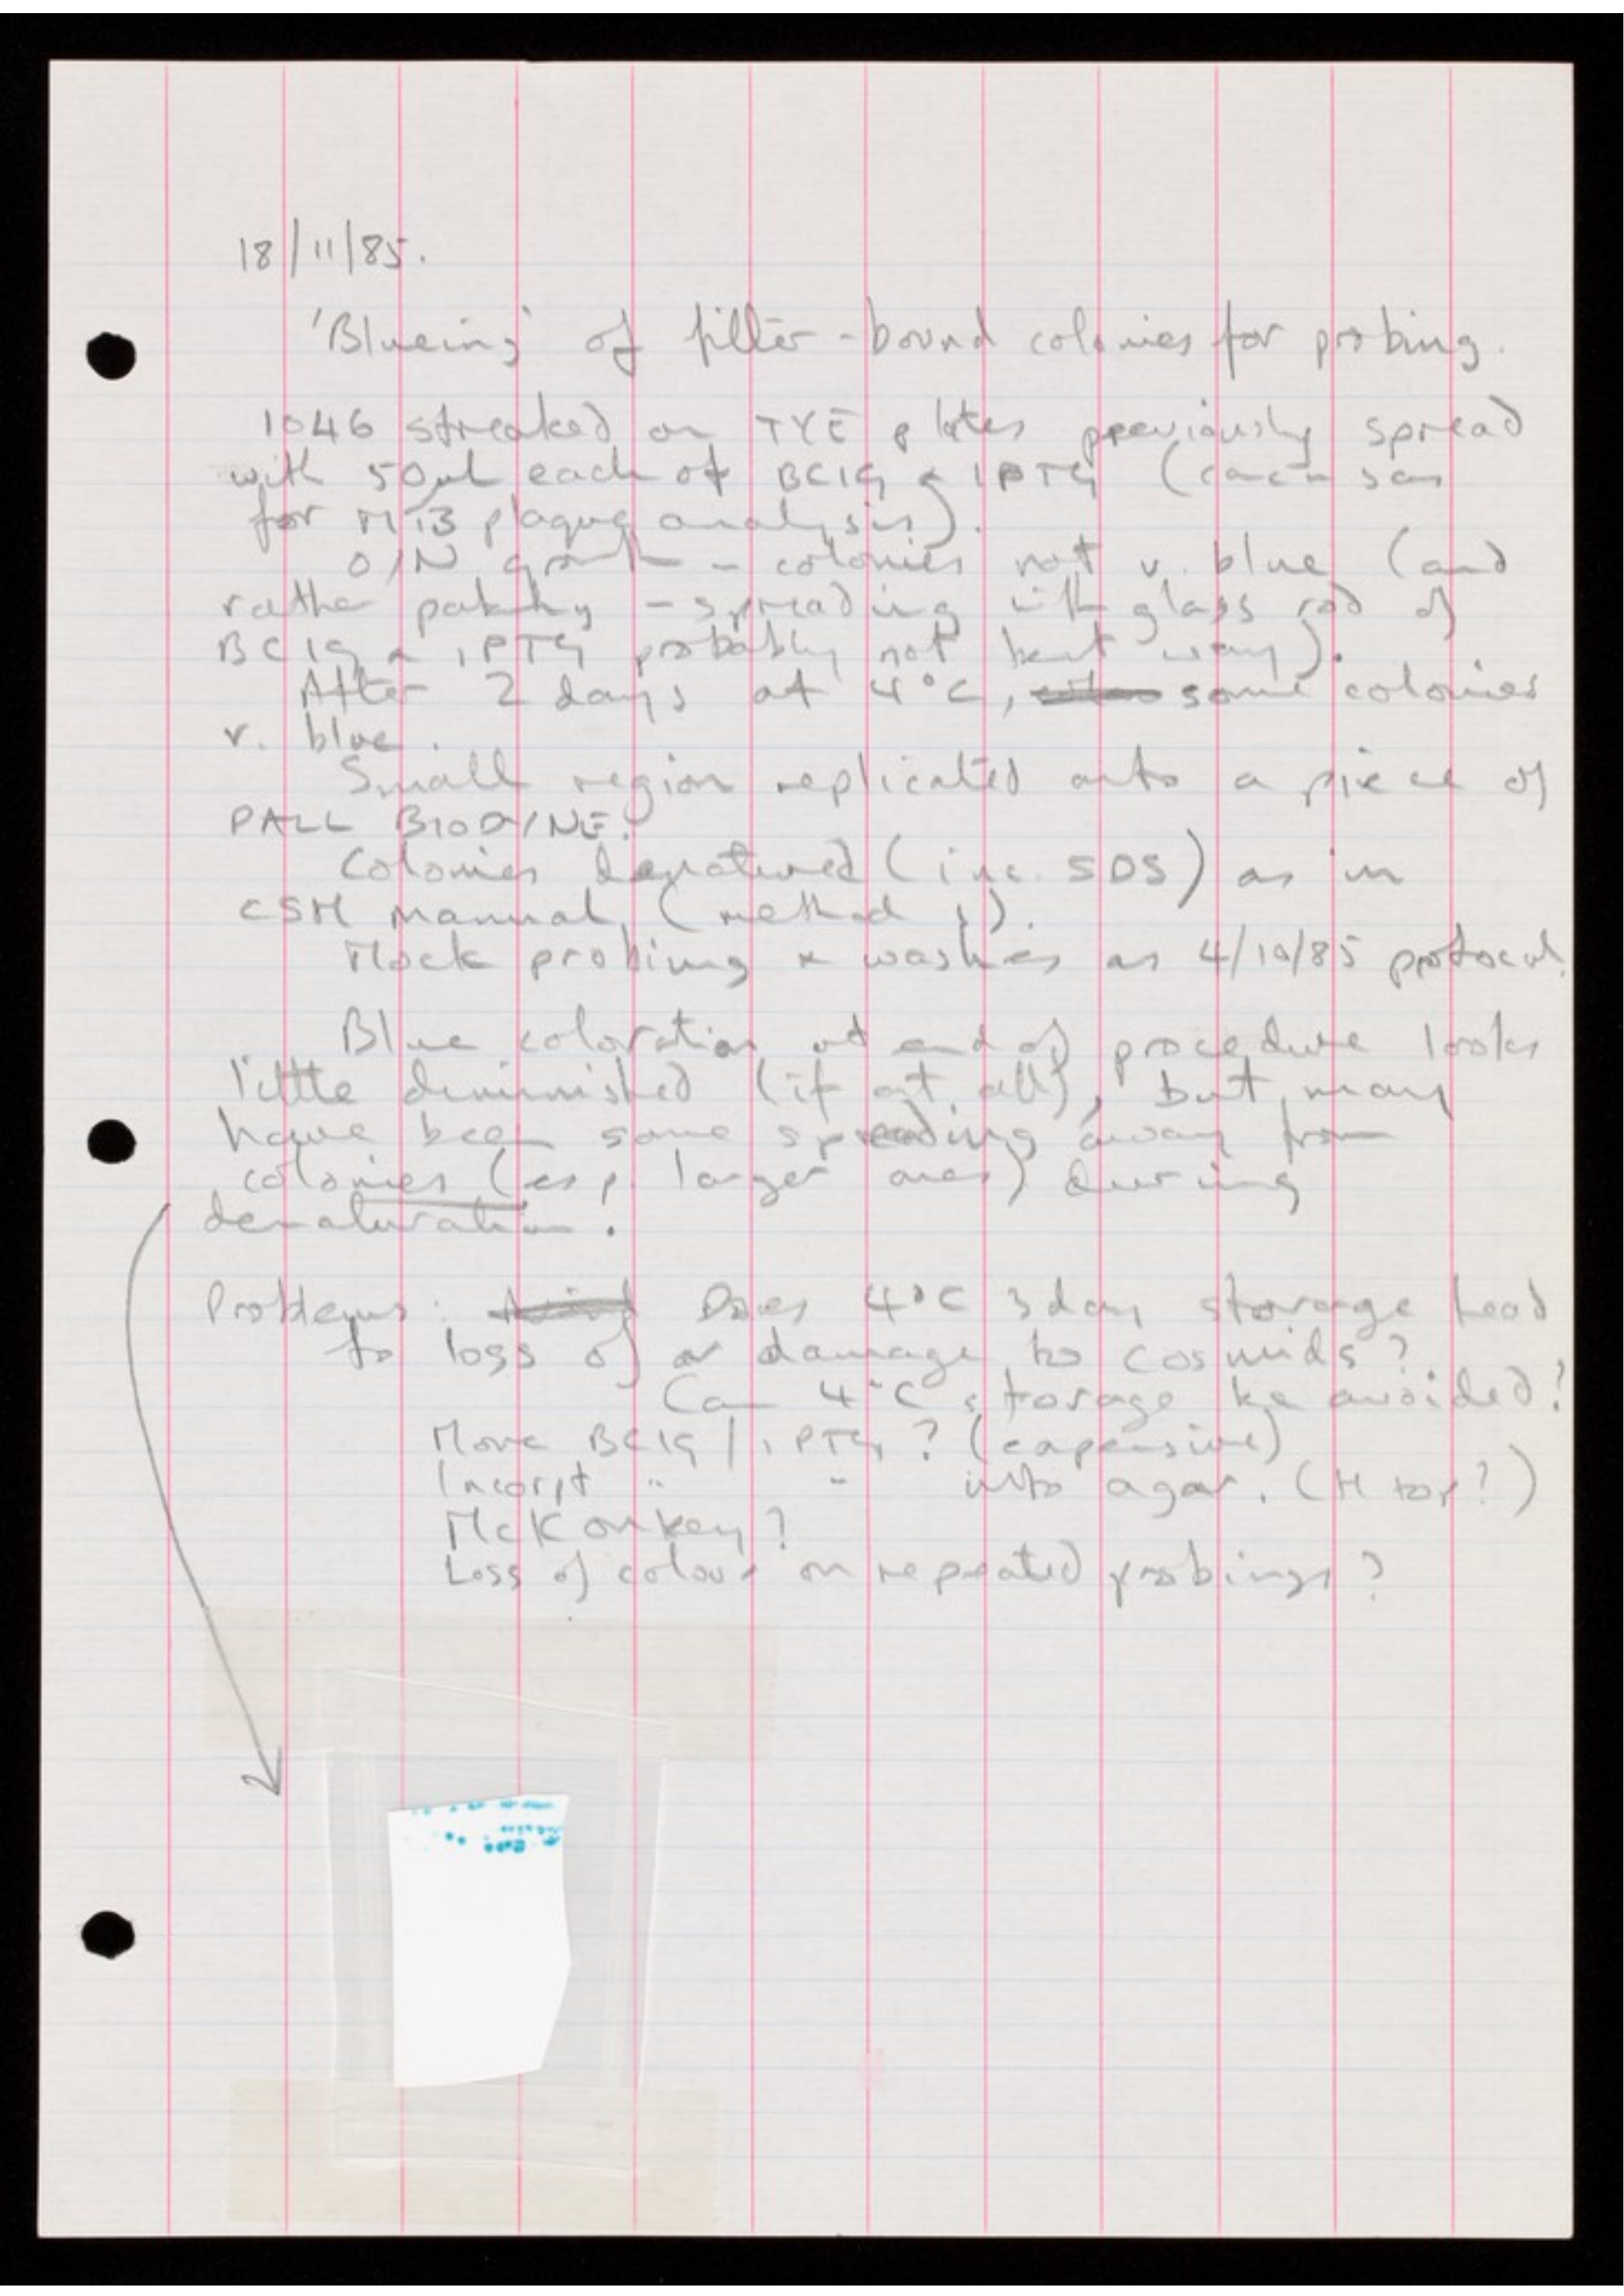 18/11/85.
'Blueing' of filter-bound colonies for probing.
1046 streaked on TYE plates previously spread
with 50µl each of BCIG & IPTG (concn same
for M13 plaque analysis).
O/N growth - colonies not v. blue (and
rather patchy - spreading with glass rod of
BCIG & IPTG probably not best way).
After 2 days at 4°C, some colonies
v. blue.
Small region replicated onto a piece of
PALL BIODYNE.
Colonies denatured (inc. SDS) as in
CSH manual (method 1).
Mock probing & washes as 4/10/85 protocol.
Blue coloration at end of procedure looks
little diminished (if at all), but may
have been some spreading away from
colonies (esp. larger ones) during
denaturation.
Problems: Does 4°C 3 day storage lead
to loss of or damage to cosmids?
Can 4°C storage be avoided?
More BCIG / IPTG? (expensive)
Incorpt " " into agar. (H top?)
McKonkey?
Loss of colour on repeated probings?